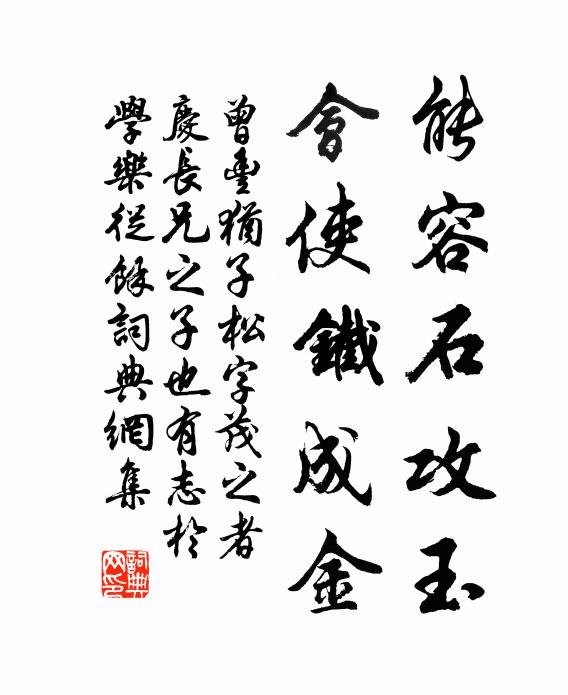 能容石攻玉
會使鐵成金
曾豐猶子松字茂之者
慶長兄之子也有志於
學樂從餘詞典網集
詞典網印